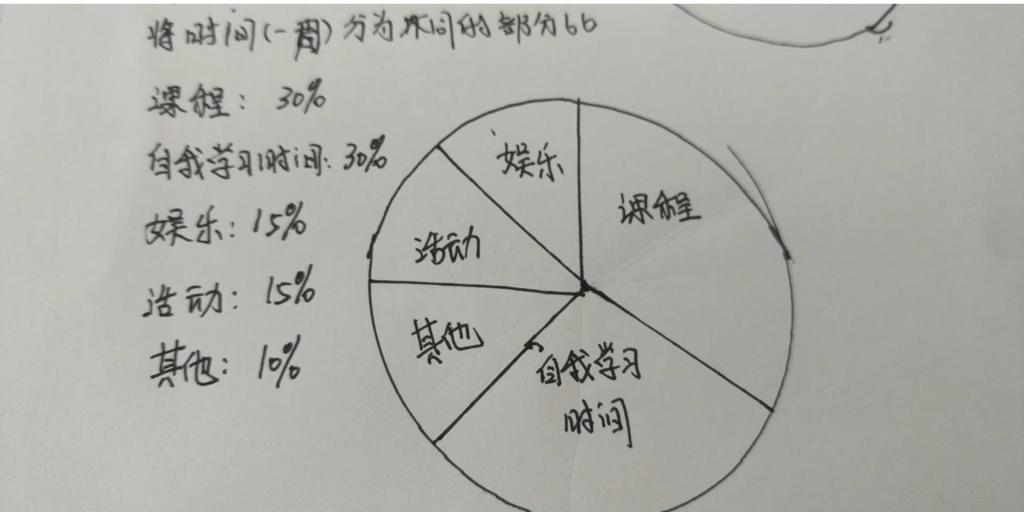 将时间(一周)分为不同的部分
课程: 30%
自我学习时间: 30%
娱乐: 15%
活动: 15%
其他: 10%
娱乐
课程
活动
其他
自我学习
时间